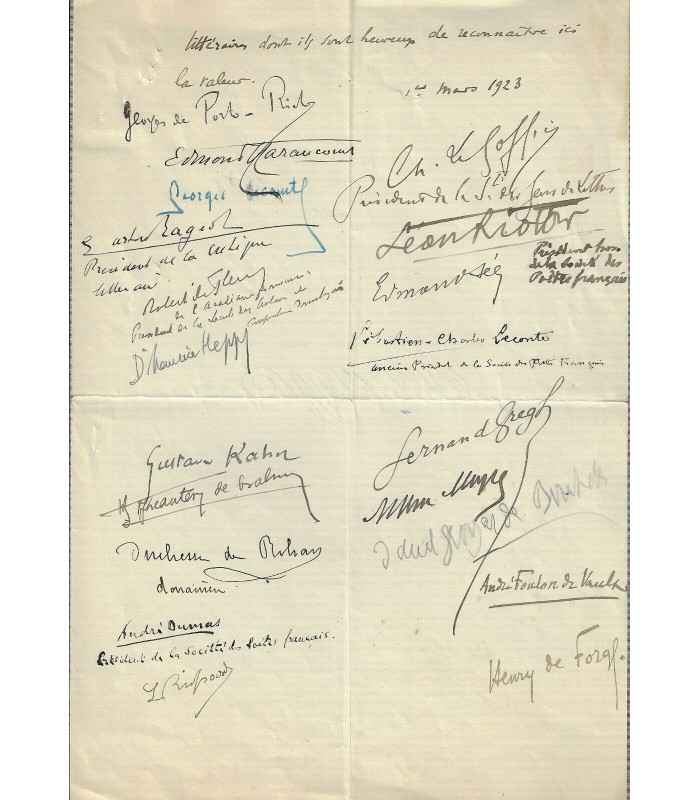 littéraires dont ils sont heureux de reconnaître ici
la valeur.
1er mars 1923
Georges de Porto-Riche
Edmond Haraucourt
Ch. Le Goffic
Président de la Sté des Gens de Lettres
Georges Lecomte
Gaston Rageot
Président de la Critique
littéraire
Léon Riotor
Président
de la Société des
Poètes français
Robert de Flers
de l'Académie française
Président de la Société des Auteurs et
Compositeurs dramatiques
Edmond Sée
Dr Maurice Heppe
Sébastien-Charles Leconte
ancien Président de la Société des Poètes Français
Gustave Kahn
Fernand Gregh
de
Duchesse de Rohan
douairière
Georges de Bouhélier
André Foulon de Vaulx
André Dumas
Président de la Société des Poètes français.
Henry de Forge